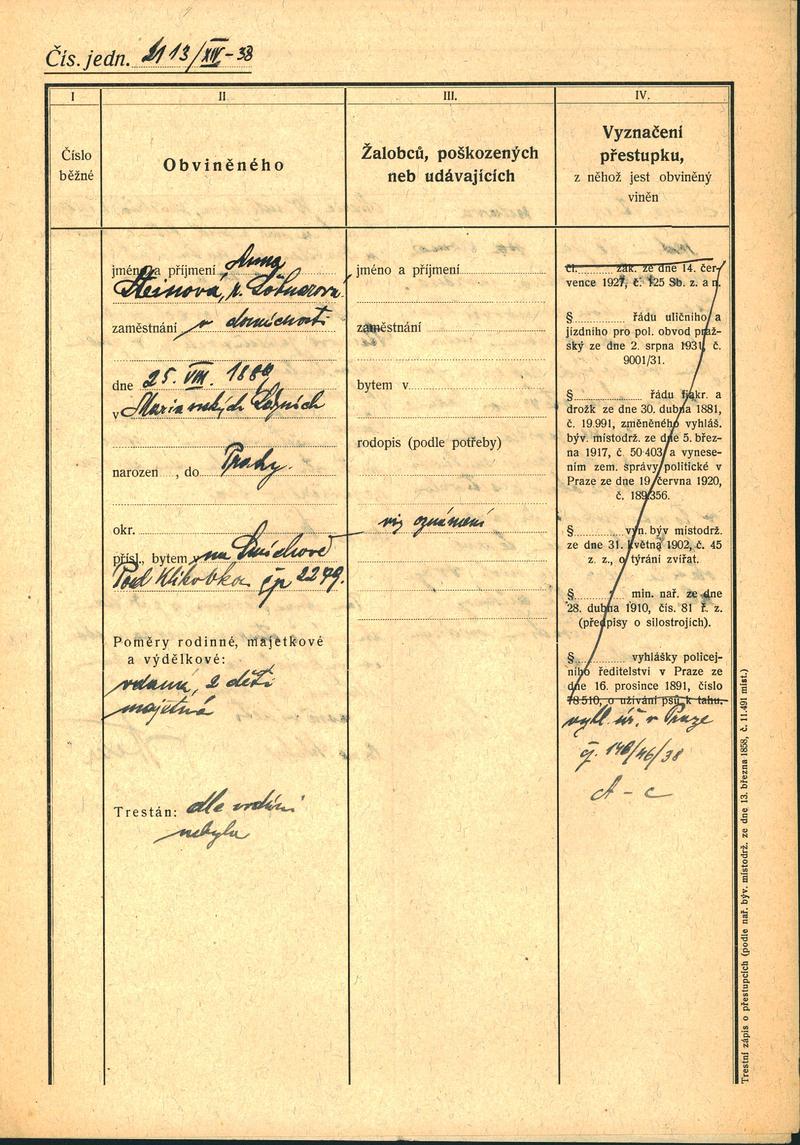 Čís. jedn. 2113/XIV-38
I
II
III.
IV.
Číslo
běžné
Obviněného
Žalobců, poškozených
neb udávajících
Vyznačení
přestupku,
z něhož jest obviněný
viněn
jméno a příjmení Anna
Steinová, r.
zaměstnání v domácnosti
dne 25. VIII.
v Marianských Lázních
narozen , do Prahy.
okr.
přísl., bytem v na Smíchově
Pod Klikovkou čp 2249.
Poměry rodinné, majetkové
a výdělkové:
vdaná, 2 děti
majetná
Trestán: dle
nebyla
jméno a příjmení
zaměstnání
bytem v
rodopis (podle potřeby)
viz oznámení
čl. zák. ze dne 14. čer-
vence 1927, č. 125 Sb. z. a n.
§ řádu uličního a
jízdního pro pol. obvod praž-
ský ze dne 2. srpna 1931, č.
9001/31.
§ řádu fiakr. a
drožk ze dne 30. dubna 1881,
č. 19.991, změněného vyhláš.
býv. místodrž. ze dne 5. břez-
na 1917, č. 50 403 a vynese-
ním zem. správy politické v
Praze ze dne 19 června 1920,
č. 189.356.
§ vyn. býv místodrž.
ze dne 31. května 1902, č. 45
z. z., o týrání zvířat.
§ min. nař. ze dne
28. dubna 1910, čís. 81 ř. z.
(předpisy o silostrojích).
§ vyhlášky policej-
ního ředitelství v Praze ze
dne 16. prosince 1891, číslo
78510, o užívání psů k tahu.
úř. v Praze
č. 146/46/38
A - c
Trestní zápis o přestupcích (podle nař. býv. místodrž. ze dne 13. března 1858, č. 11.491 míst.)